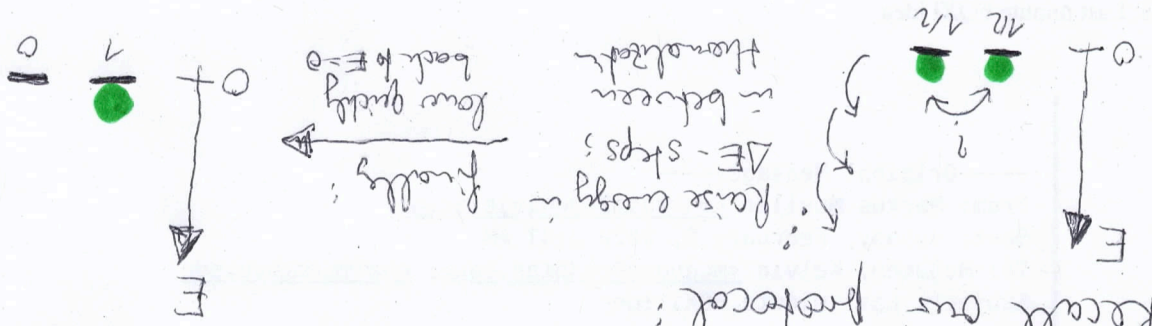 Recall our protocol:
E
Raise energy in
ΔE-steps;
in between
thermalize
?
0
1/2 1/2
finally:
lower quickly
back to E=0
E
0
1
0